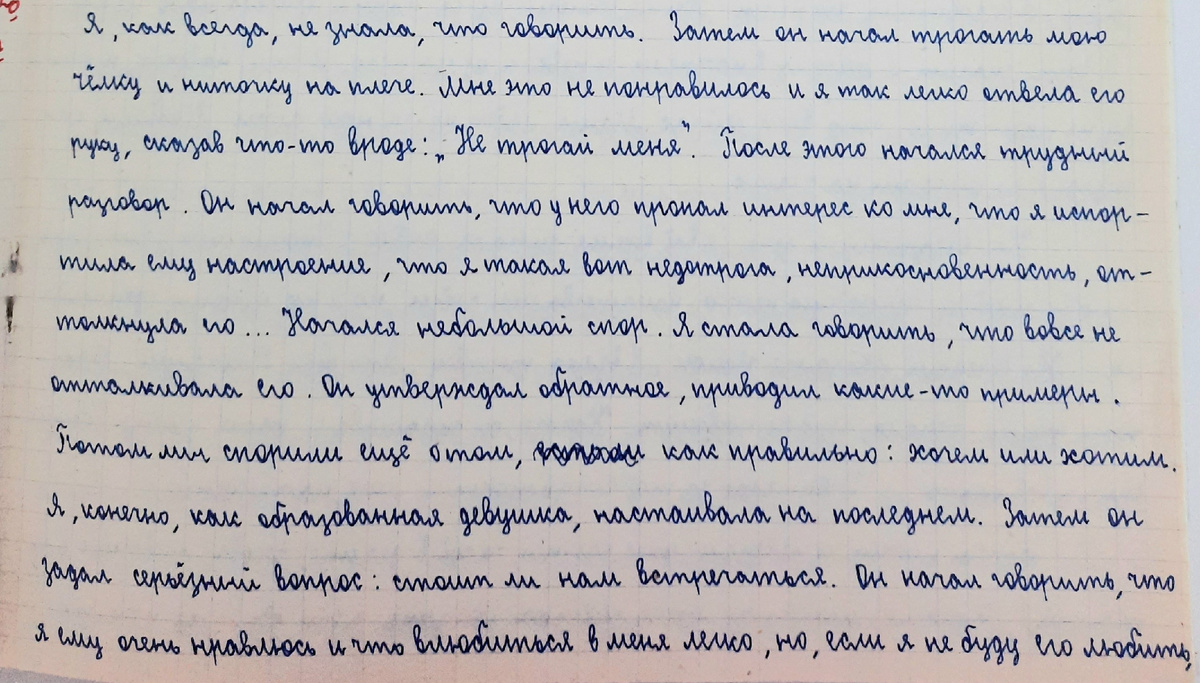 Я, как всегда, не знала, что говорить. Затем он начал трогать мою
чёлку и ниточку на плече. Мне это не понравилось и я так легко отвела его
руку, сказав что-то вроде: „Не трогай меня". После этого начался трудный
разговор. Он начал говорить, что у него пропал интерес ко мне, что я испор-
тила ему настроение, что я такая вот недотрога, неприкосновенность, от-
толкнула его... Начался небольшой спор. Я стала говорить, что вовсе не
отталкивала его. Он утверждал обратное, приводил какие-то примеры.
Потом мы спорили ещё о том, как правильно: хочем или хотим.
Я, конечно, как образованная девушка, настаивала на последнем. Затем он
задал серьёзный вопрос: стоит ли нам встречаться. Он начал говорить, что
я ему очень нравлюсь и что влюбиться в меня легко, но, если я не буду его любить,